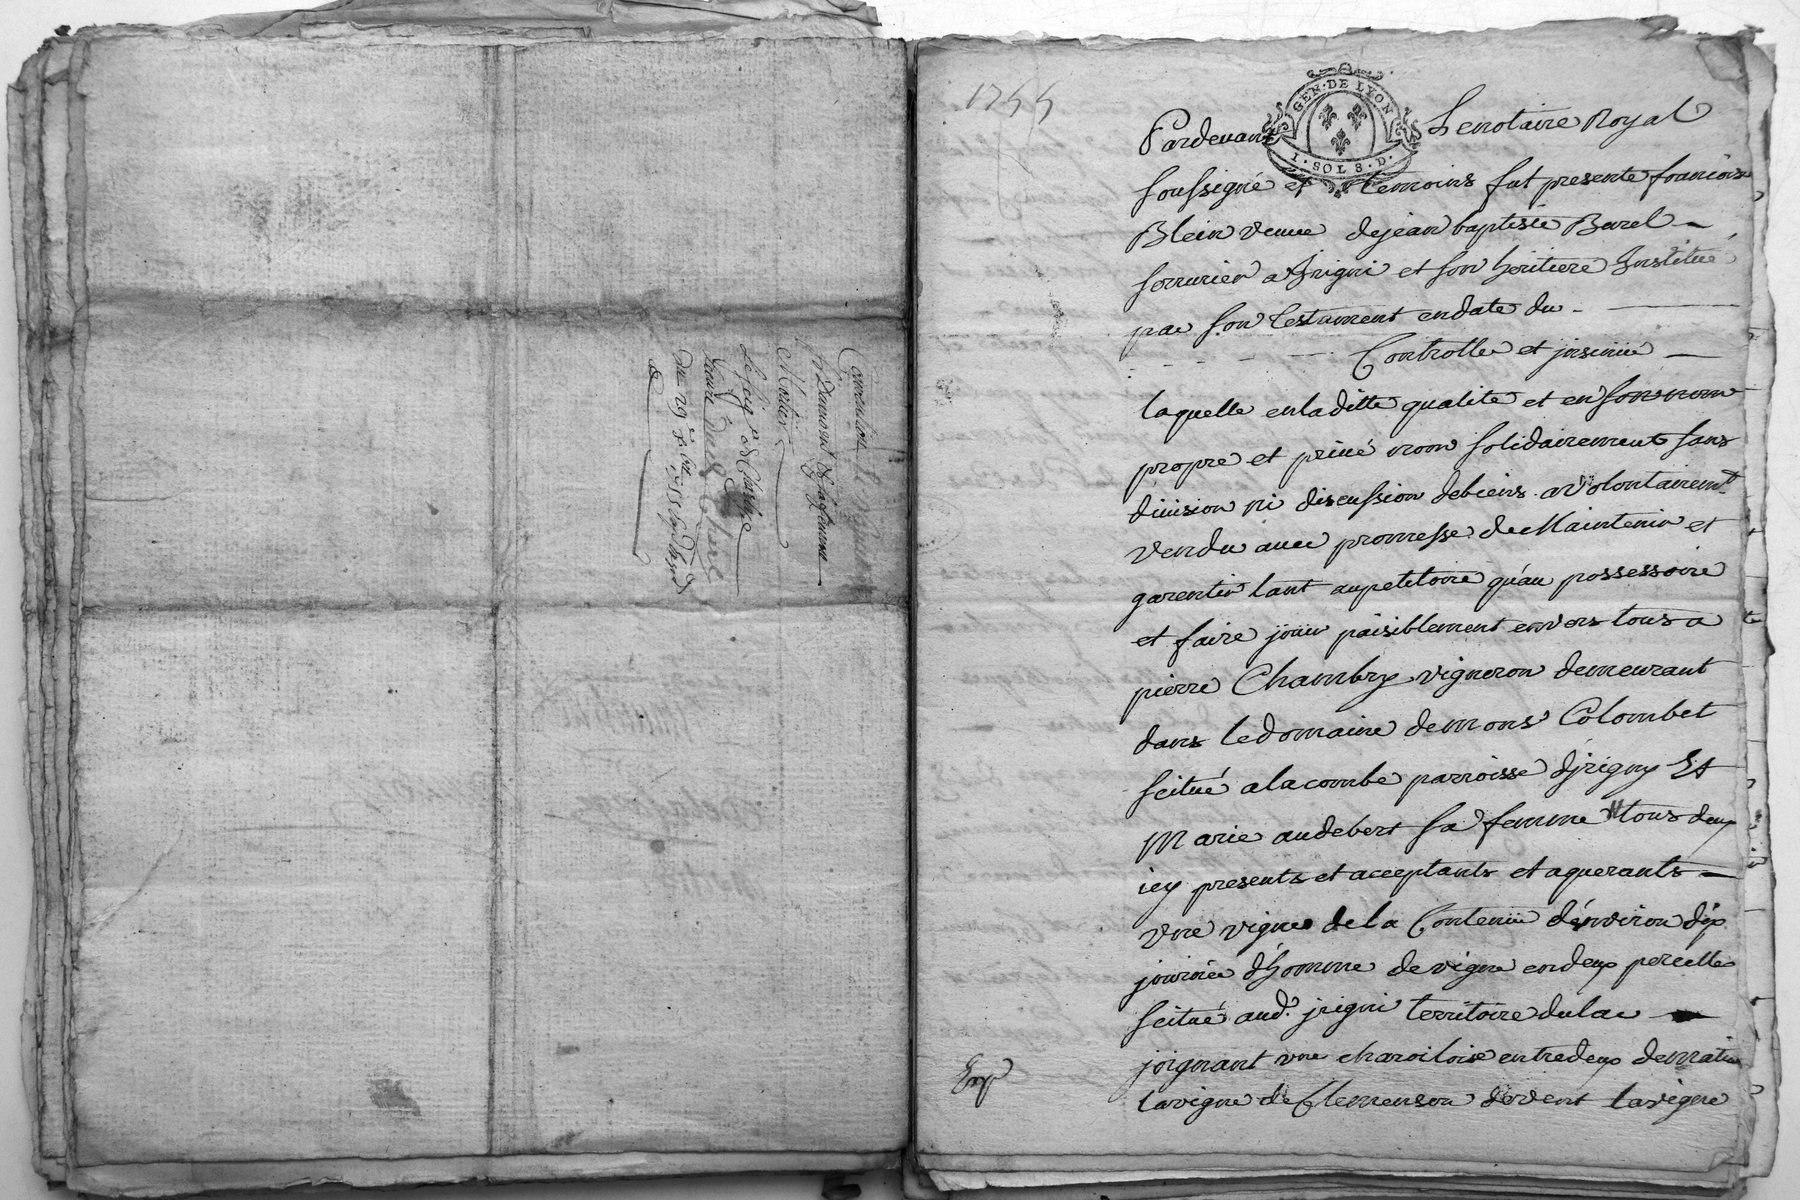 Convention
du 29 xbre 1755
1755
GEN · DE LYON
I · SOL 8 · D ·
Pardevant Le notaire Royal
soussigné et temoins fut presente françoise
Blein veuve de jean baptiste Burel
serrurier a Irigni et son heritiere Institué
par son testament en date du
Controlle et insinüé
laquelle en la ditte qualité et en son nom
propre et privé nom solidairement sans
division ni discussion de biens a volontairemt
vendu avec promesse de Maintenir et
garentir tant au petitoire qu'au possessoire
et faire joüir paisiblement envers tous a
pierre Chambry vigneron demeurant
dans le domaine de mons.r Colombet
scitué a la combe parroisse d'jrigny Et
Marie audebert sa femme tous deux
icy presents et acceptants et aquerants
vne vigne de la Contenüe d'environ dix
journée d'homme de vigne en deux percelles
scitué aud.t jrigni territoire du lac
joignant vne charoiloise entre deux de matin
la vigne de Clemenson de vent la vigne
Exp